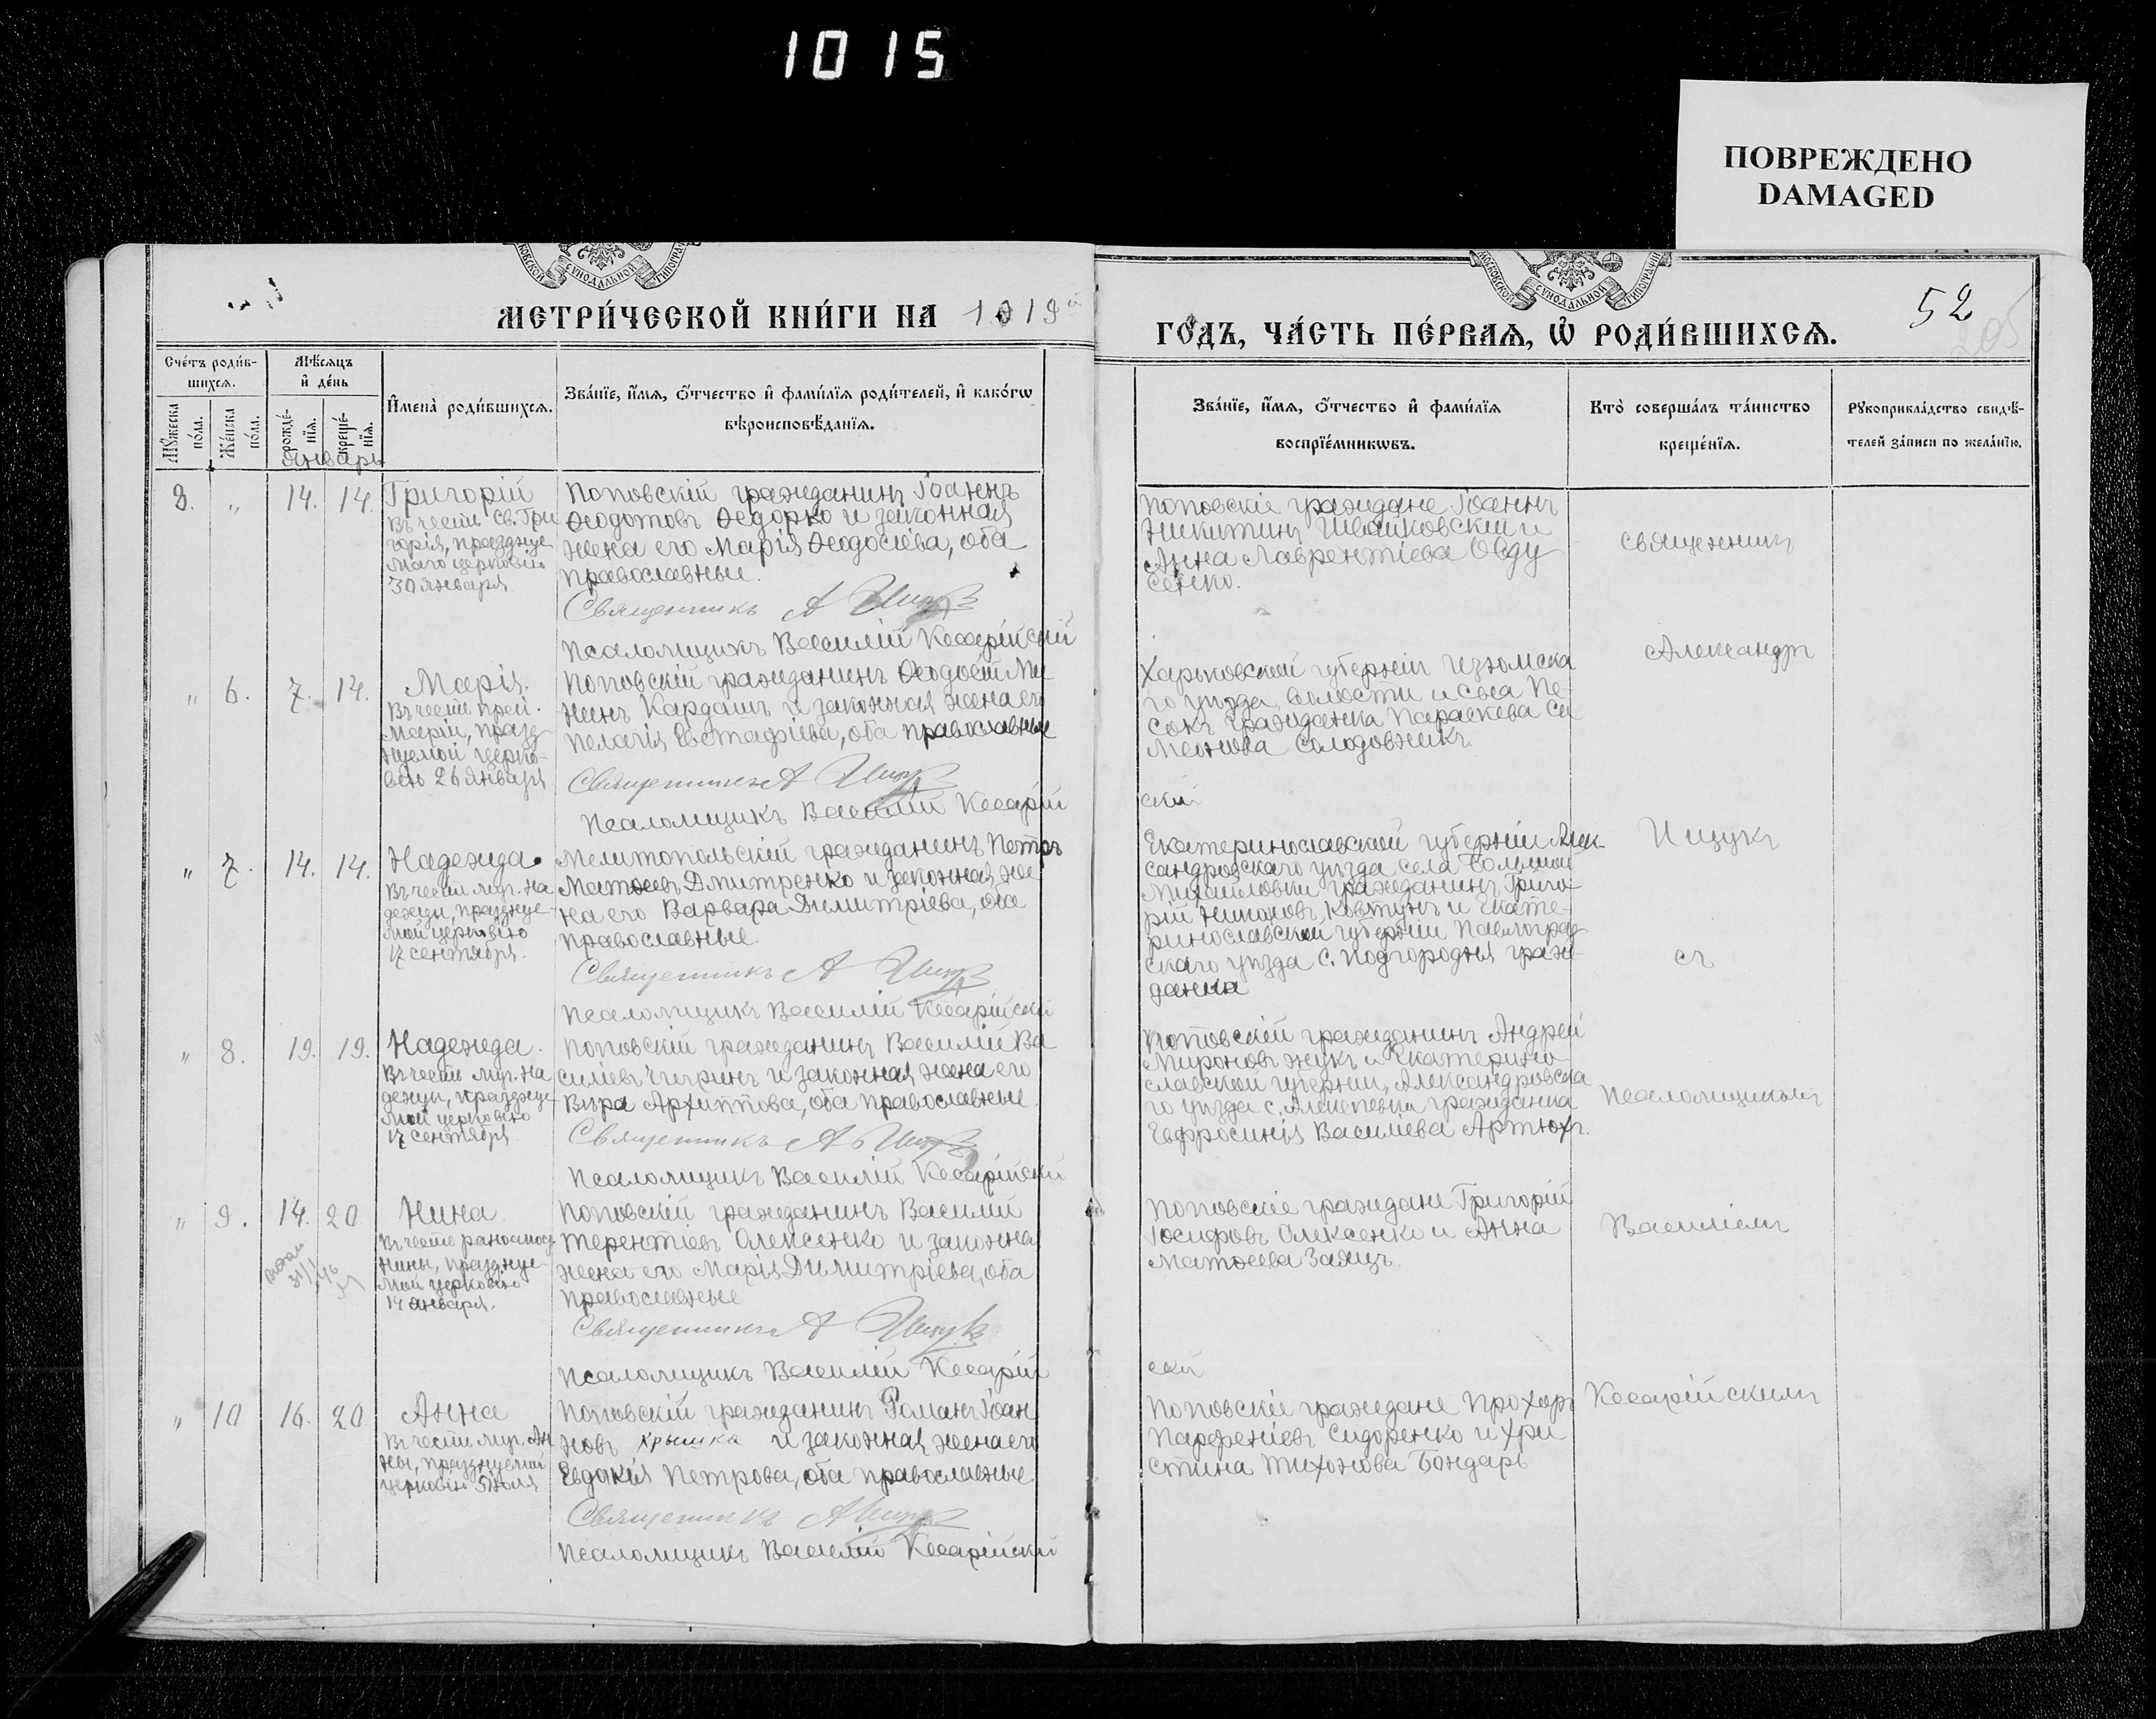 1015
ПОВРЕЖДЕНО
DAMAGED
МОСКОВСКОЙ СѴНОДАЛЬНОЙ ТИПОГРАФІИ
МОСКОВСКОЙ СѴНОДАЛЬНОЙ ТИПОГРАФІИ
МЕТРИ́ЧЕСКОЙ КНИ́ГИ НА 1919й
ГО́ДЪ, ЧА́СТЬ ПЕ́РВАѦ, Ѡ҆ РОДИ́ВШИХСѦ.
52
205
Сче́тъ роди́в-
шихсѧ.
Мꙋ́жеска по́ла.
Же́нска по́ла.
Мѣ́сѧцъ и҆ де́нь
рожде́-
нїѧ.
креще́-
нїѧ.
Январь
И҆мена̀ роди́вшихсѧ.
Зва́нїе, и҆́мѧ, ѻ҆́тчество и҆ фамѝлїѧ роди́телей, и҆ како́гѡ
вѣроисповѣ́данїѧ.
Зва́нїе, и҆́мѧ, ѻ҆́тчество и҆ фамѝлїѧ
воспрїе́мникѡвъ.
Кто̀ соверша́лъ та́инство
креще́нїѧ.
Рꙋкоприкла́дство свидѣ́-
телей за́писи по жела́нїю.
8. " 14. 14. Григорій
Въ честь св. Гри
горія, праздуе
маго церковію
30 января
Поповскій гражданинъ Іоаннъ
Ѳеодотовъ Ѳедорко и законная
жена его Марія Ѳеодосіева, оба
православные.
Священникъ А Ищукъ
Псаломщикъ Василій Кесарійскій
Поповскіе граждане Іоаннъ
Никитинъ Швайковскій и
Анна Лаврентіева Овду
сенко.
Священникъ
" 6. 7. 14. Марія.
Въ честь преп.
Маріи, празд
нуемой церко-
вію 26 января
Поповскій гражданинъ Ѳеодосій Ми
нинъ Кардашъ и законная жена его
Пелагія Евстафіева, оба православные
Священникъ А Ищукъ
Псаломщикъ Василій Кесарій
скій
Харьковской губерніи Изюмска
го уѣзда, волости и села Пе-
сокъ гражданка Параскева Си
меонова Солодовникъ.
Александръ
" 7. 14. 14. Надежда.
Въ честь муч. На
дежды, празднуе-
мой церковію
17 сентября.
Мелитопольскій гражданинъ Петръ
Матѳеевъ Дмитренко и законная же
на его Варвара Димитріева, оба
православные.
Священникъ А Ищукъ
Псаломщикъ Василій Кесарійскій
Екатеринославской губерніи Алек-
сандровскаго уѣзда села Большой
Михайловки гражданинъ Григо-
рій Никоновъ Ковтунъ и Екате-
ринославской губерніи Павлоград
скаго уѣзда с. Подгородня граж-
данка
Ищукъ
съ
" 8. 19. 19. Надежда.
Въ честь муч. На
дежды, празднуе-
мой церковію
17 сентября.
Поповскій гражданинъ Василій Ва
силіевъ Чигринъ и законная жена его
Вѣра Архиппова, оба православные
Священникъ А Ищукъ
Псаломщикъ Василій Кесарійскій
Поповскій гражданинъ Андрей
Мироновъ Жукъ и Екатерино
славской губерніи, Александровска
го уѣзда с. гражданка
Евфросинія Василіева Артюхъ.
Псаломщикомъ
" 9. 14. 20 Нина
Въ честь равноап.
Нины, празднуе-
мой церковію
14 января.
Поповскій гражданинъ Василій
Терентіевъ Олексенко и законна
жена его Марія Димитріева, оба
православные
Священникъ А Ищукъ
Псаломщикъ Василій Кесарій
скій
Поповскіе граждане Григорій
Іосифовъ Олексенко и Анна
Матѳеева Заяцъ.
Василіемъ
" 10 16. 20 Анна
Въ честь муч. Ан
ны, празднуемой
церковію 5 іюля
Поповскій гражданинъ Романъ Іоан
новъ Крышка и законная жена его
Евдокія Петрова, оба православные.
Священникъ А Ищукъ
Псаломщикъ Василій Кесарійскій
Поповскіе граждане Прохоръ
Парѳеніевъ Сидоренко и Хри
стина Тихонова Бондарь
Кесарійскимъ